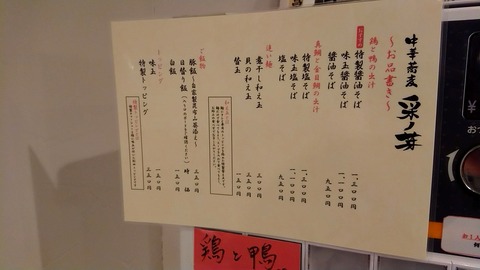 中華蕎麦 采ノ芽
～お品書き～
鶏と鴨の出汁
特製醤油そば 一、三〇〇円
味玉醤油そば 一、一〇〇円
醤油そば 九五〇円
真鯛と金目鯛の出汁
特製塩そば 一、三〇〇円
味玉塩そば 一、一〇〇円
塩そば 九五〇円
追い麺
煮干し和え玉 三〇〇円
貝の和え玉 三五〇円
替玉 一五〇円
ご飯物
豚飯～自家製昆布山葵添え～ 三五〇円
日替り飯 時価
白飯 一五〇円
トッピング
味玉 一五〇円
特製トッピング 三五〇円
鶏と鴨